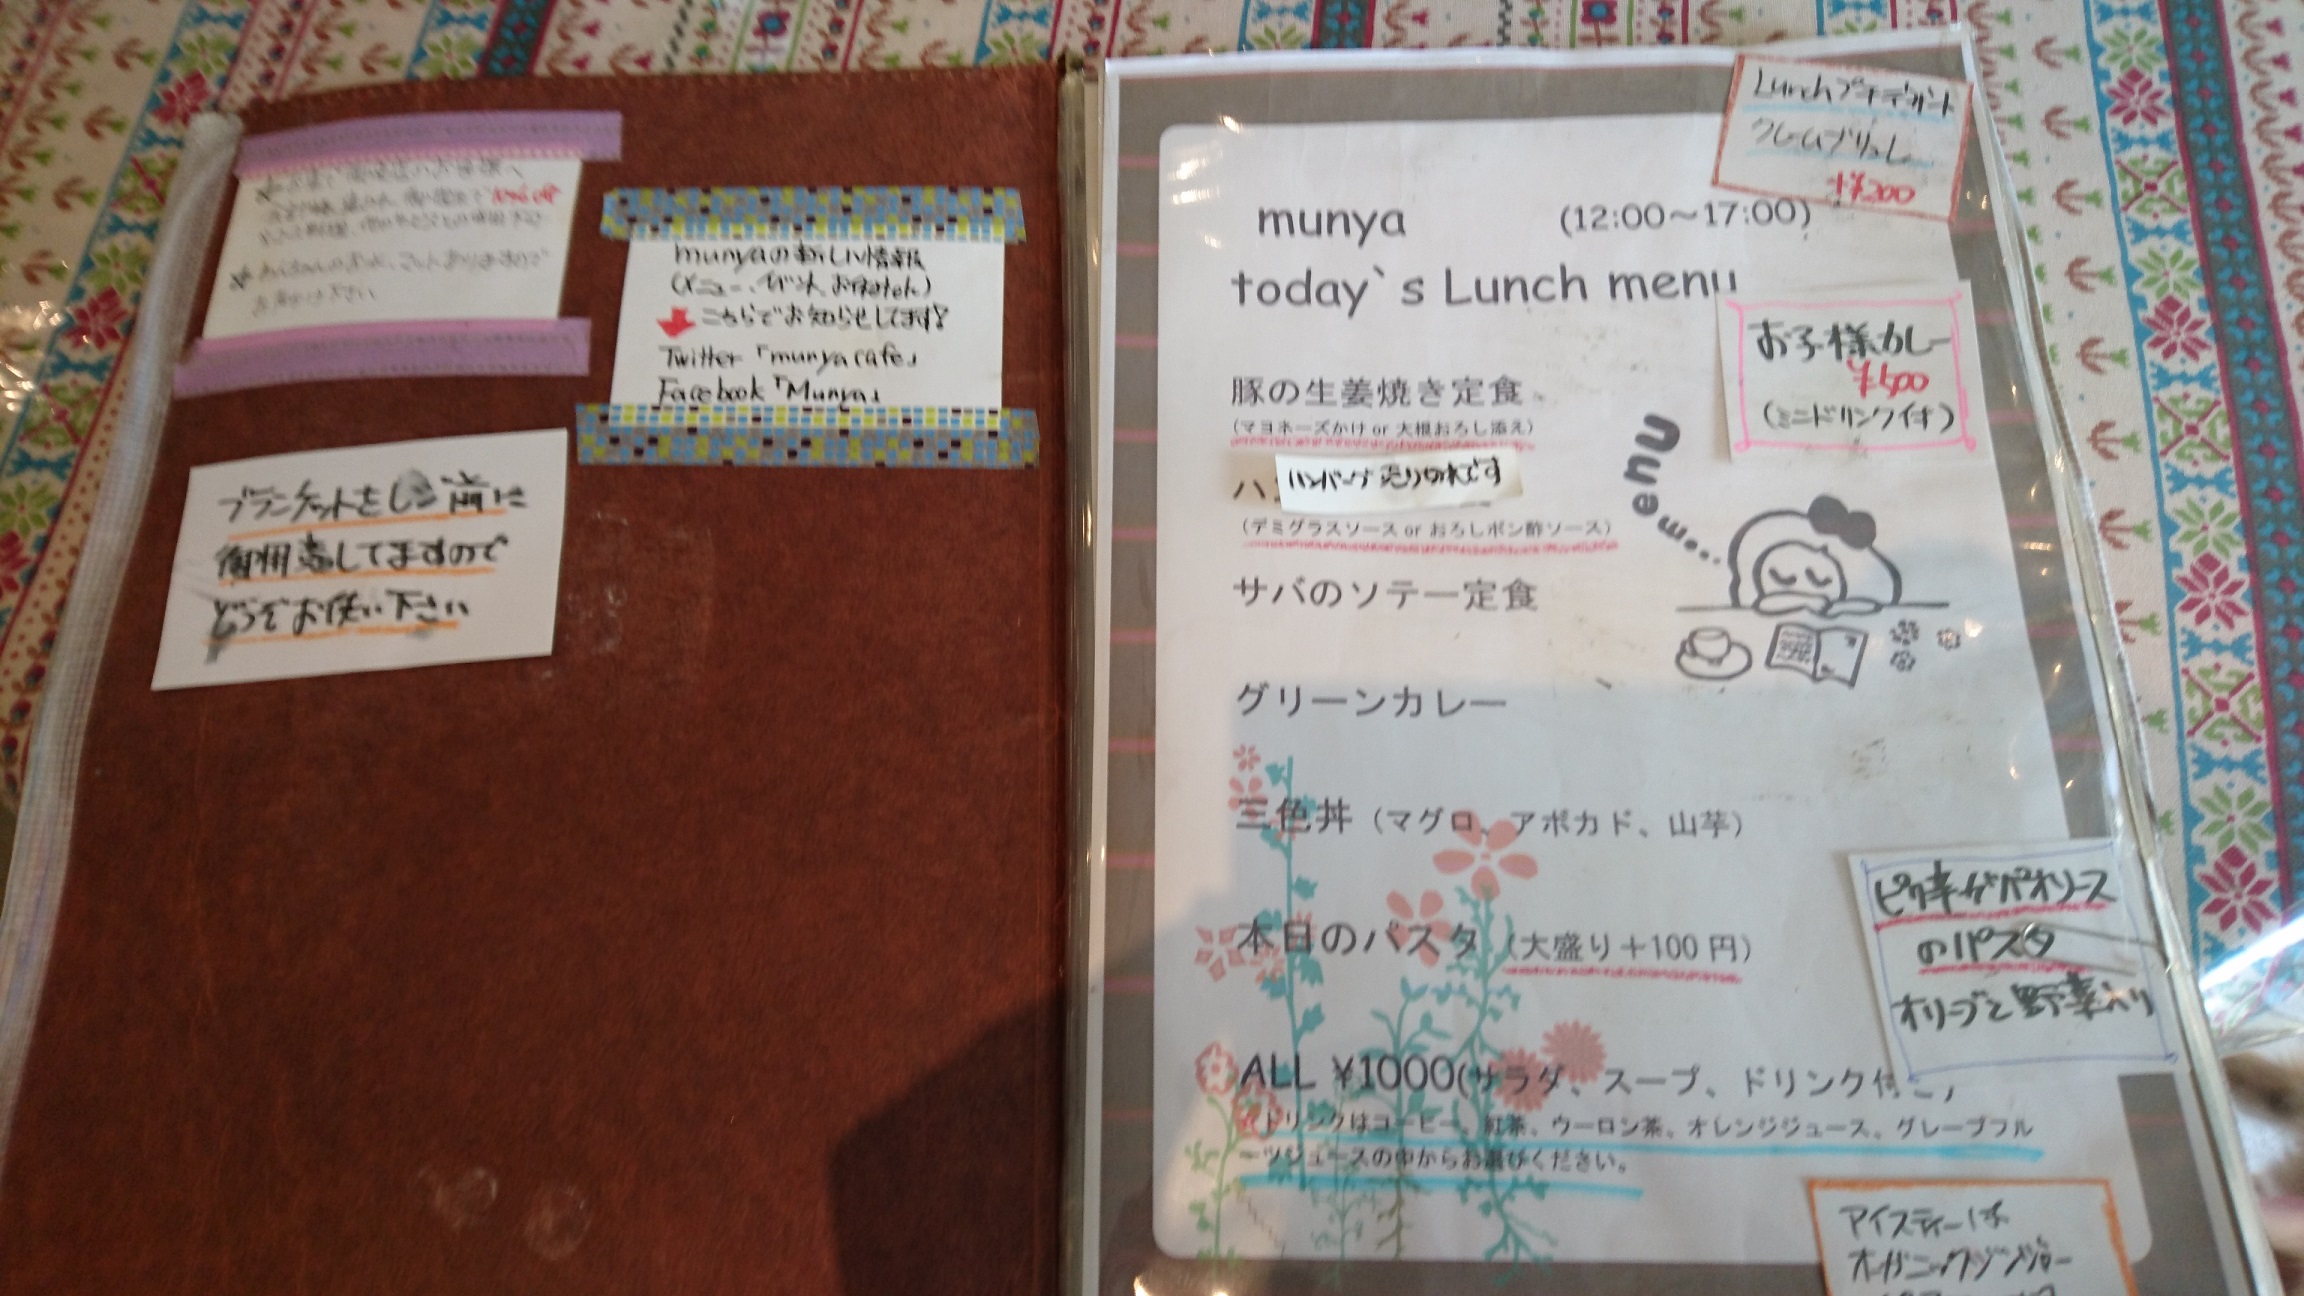 munyaの新しい情報
こちらでお知らせしてます!
Twitter「munya cafe」
Facebook「Munya」
御用意してますので
どうぞお使い下さい
munya (12:00～17:00)
today`s Lunch menu
豚の生姜焼き定食
(マヨネーズかけ or 大根おろし添え)
ハンバーグ売り切れです
(デミグラスソース or おろしポン酢ソース)
サバのソテー定食
グリーンカレー
三色丼 (マグロ、アボカド、山芋)
本日のパスタ (大盛り＋100円)
ALL ¥1000(サラダ、スープ、ドリンク付
ドリンクはコーヒー、紅茶、ウーロン茶、オレンジジュース、グレープフル
ーツジュースの中からお選びください。
menu...
Lunchプチデザート
クレームブリュレ
+¥200
お子様カレー
¥500
(ミニドリンク付)
のパスタ
オリーブと野菜入り
アイスティーは